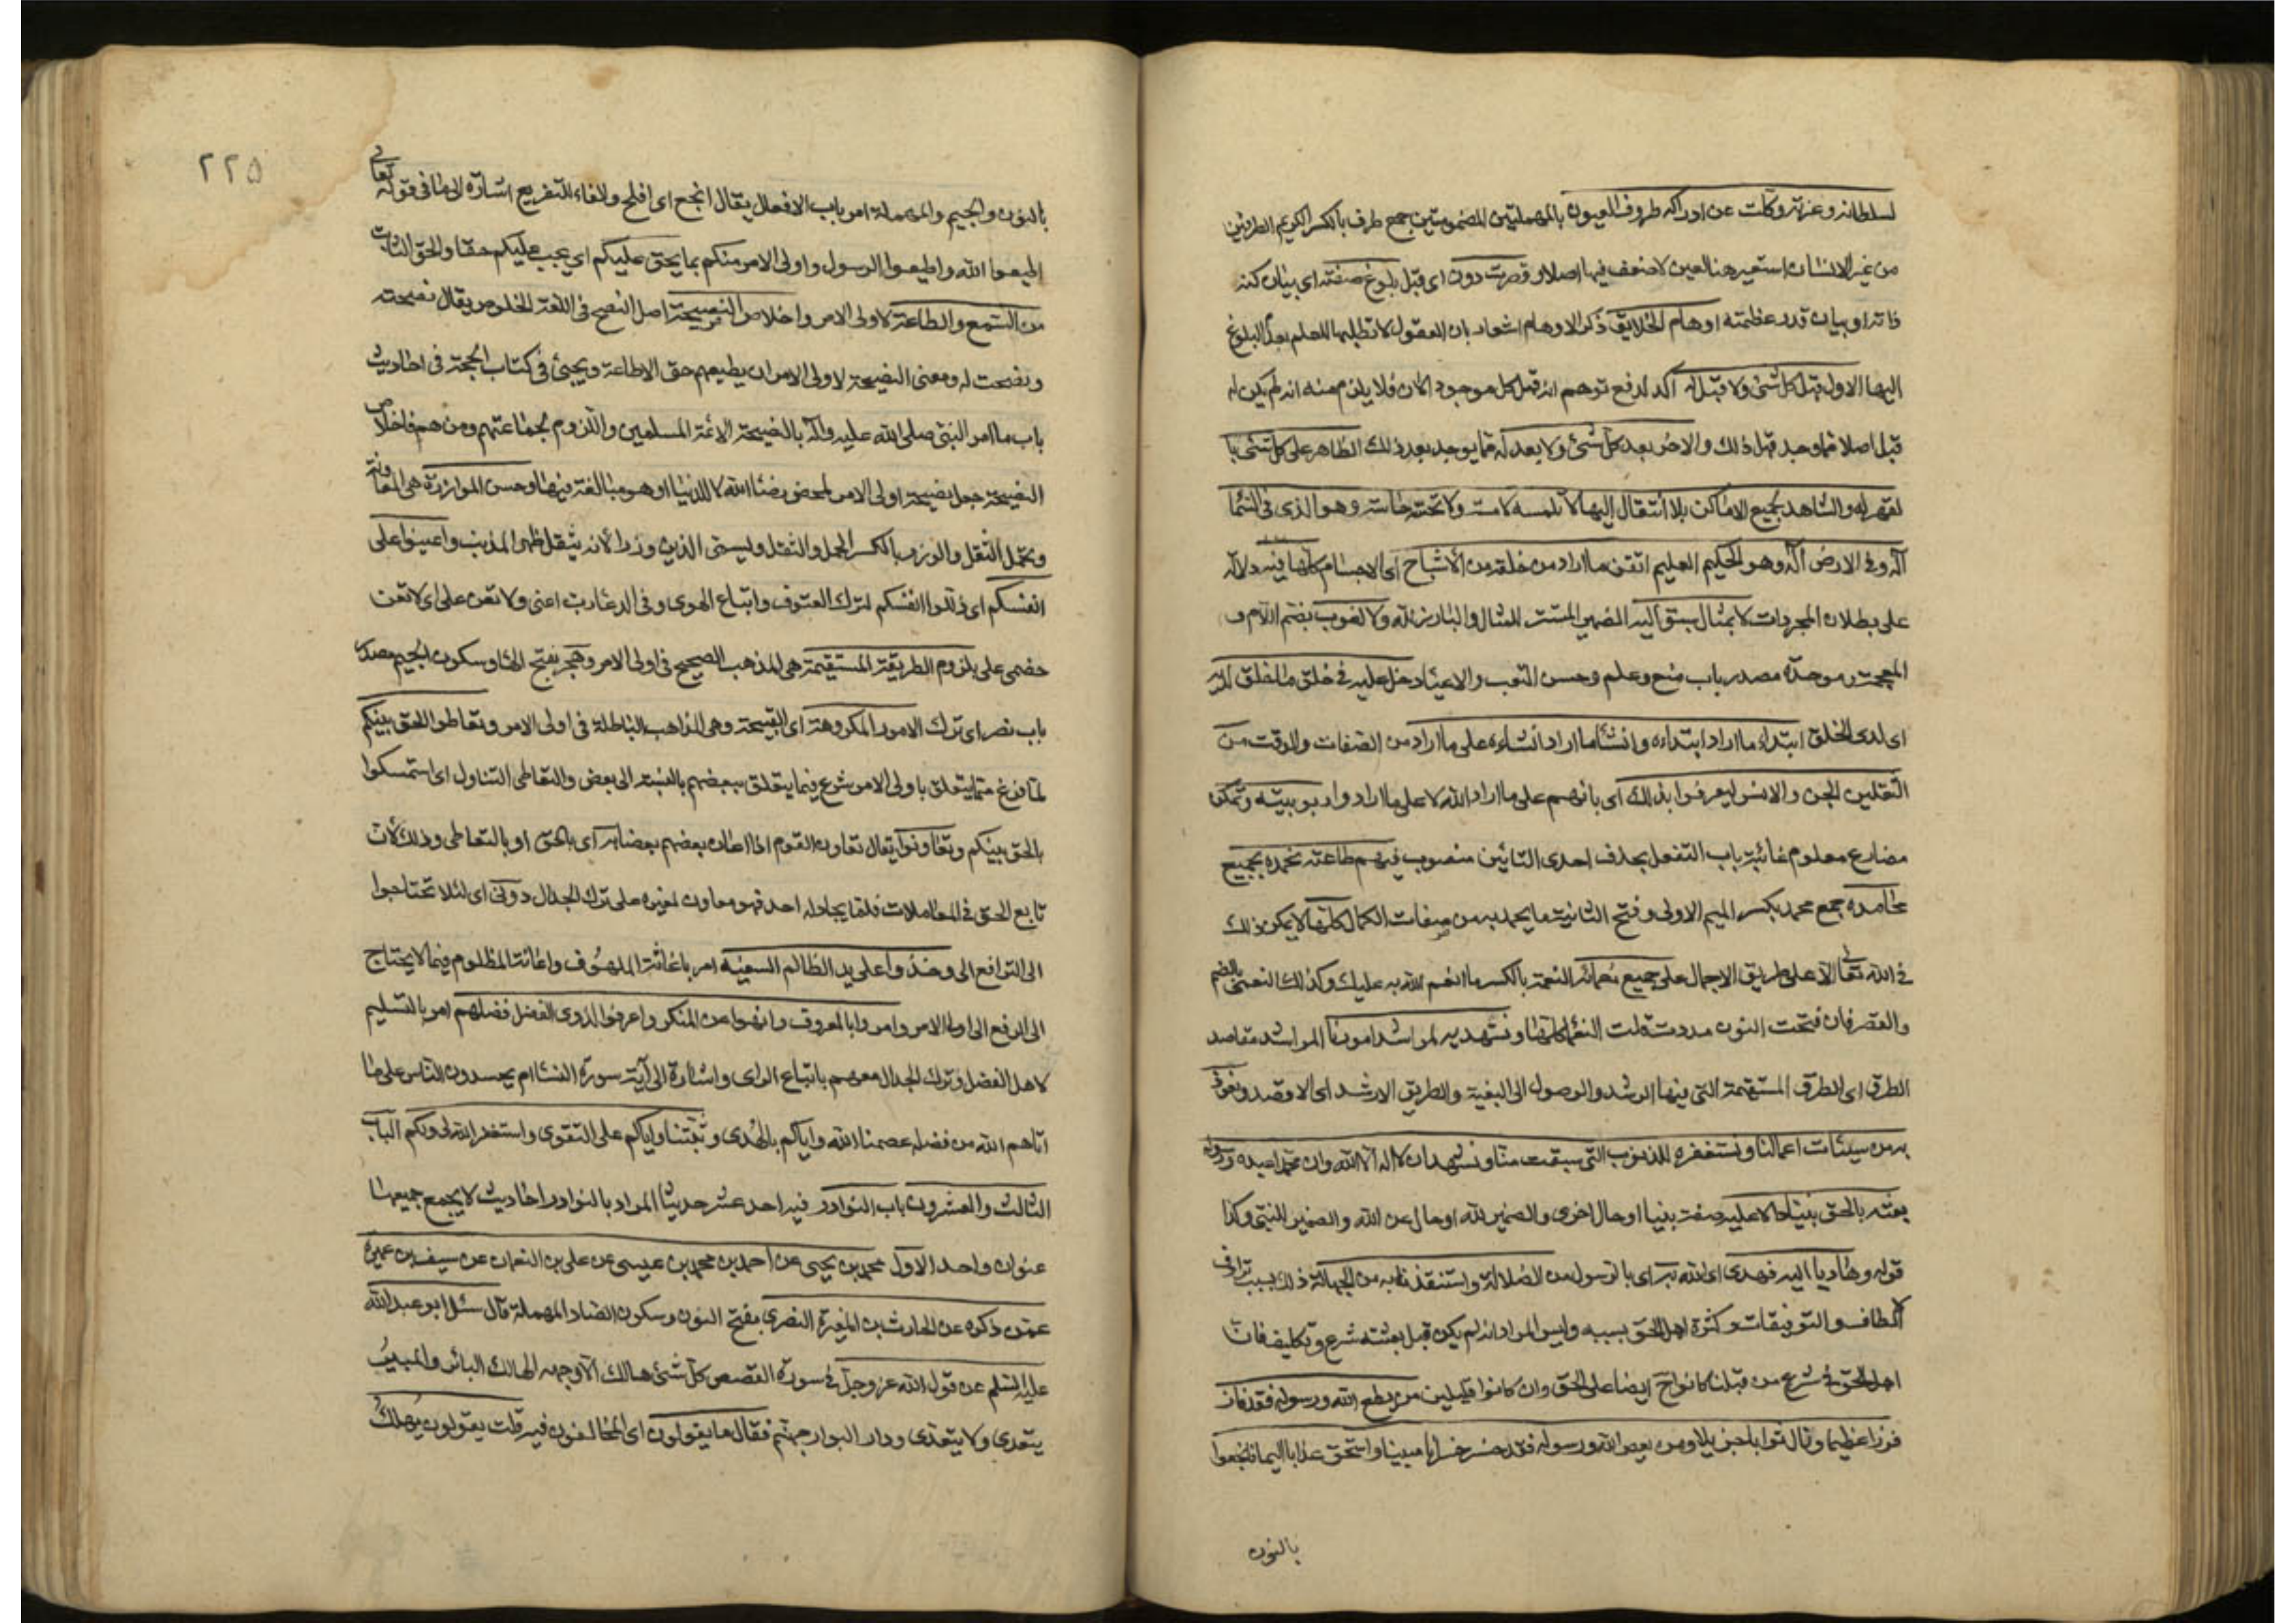 لسلطانه وعزته وكلت عن ادراكه طروف العيون بالمهملتين المضمومتين جمع طرف بالكسر الكريم الطرفين
من غير الانسان استعير هنا لعين لا ضعف فيها اصلا وقصرت دون اى قبل بلوغ صفته اى بيان كنه
ذاته او بيان قدر عظمته اوهام الخلايق ذكر الاوهام اشعار بان العقول لا تطلبها للعلم بعدم البلوغ
اليها الاول قبل كل شئ ولا قبل له أكد لدفع توهم انه قبل كل موجود الان فلا يلزم منه انه لم يكن له
قبل اصلا مما وجد قبل ذلك والاخر بعد كل شئ ولا بعد له مما يوجد بعد ذلك الظاهر على كل شئ با
لقهر له والشاهد لجميع الاماكن بلا انتقال اليها لا تلمسه لامسة ولا تحسه حاسة وهو الذى فى السما
اله وفى الارض اله وهو الحكيم العليم اتقن ما اراد من خلقه من الأشباح اى الاجسام كلها فيه دلالة
على بطلان المجردات لا بمثال سبق اليه الضمير المستتر للمثال والبارز لله ولا لغوب بضم اللام و
المعجمة وموحدة مصدر باب منع وعلم وحسن التعب والاعياء دخل عليه فى خلق ما خلق لديه
اى لدى الخلق ابتداء ما اراد ابتداءه وانشأ ما اراد انشاءه على ما اراد من الصفات والوقت من
الثقلين الجن والانس ليعرفوا بذلك اى بانهم على ما اراد الله لا على ما ارادوا ربوبيته وتمكن
مضارع معلوم غائبة باب التفعل بحذف احدى التائين منصوب فيهم طاعته نحمده بجميع
محامده جمع محمد بكسر الميم الاولى وفتح الثانية ما يحمد به من صفات الكمال كلها لا يمكن ذلك
فى الله تعالى الا على طريق الاجمال على جميع نعمائه النعمة بالكسر ما انعم الله به عليك وكذلك النعمى بالضم
والقصر فان فتحت النون مددت قلت النعماء كلها ونستهديه لمراشد امورنا المراشد مقاصد
الطرق اى الطرق المستقيمة التى فيها الرشد والوصول الى البغية والطريق الارشد اى الاقصد ونعوذ
به من سيئات اعمالنا ونستغفره للذنوب التى سبقت منا ونشهد ان لا اله الا الله وان محمدا عبده ورسوله
بعثه بالحق نبيا دالا عليه صفة نبيا او حال اخرى والضمير لله او حال عن الله والضمير للنبى وكذا
قوله وهاديا اليه فهدى اى الله به اى بالرسول من الضلالة واستنقذنا به من الجهالة ذلك بسبب ترادف
الالطاف والتوفيقات وكثرة اهل الحق بسببه وليس المراد انه لم يكن قبل بعثته شرع وتكليف فان
اهل الحق فى شرع من قبلنا كانوا ح ايضا على الحق وان كانوا قليلين من يطع الله ورسوله فقد فاز
فوزا عظيما ونال ثوابا جزيلا ومن يعص الله ورسوله فقد خسر خسرانا مبينا واستحق عذابا اليما فانجعوا
بالنون
٢٢٥
بالنون والجيم والمهملة امر باب الافعال يقال انجع اى افلح والفاء للتفريع اشارة الى ما فى قوله تعالى
اطيعوا الله واطيعوا الرسول واولى الامر منكم بما يحق عليكم اى يجب عليكم حقا والحق الثابت
من السمع والطاعة لاولى الامر واخلاص النصيحة اصل النصح فى اللغة الخلوص يقال نصحته
ونصحت له ومعنى النصيحة لاولى الامر ان يطيعهم حق الاطاعة ويجئ فى كتاب الحجة فى احاديث
باب ما امر النبى صلى الله عليه وآله بالنصيحة لائمة المسلمين واللزوم لجماعتهم ومن هم فاخلاص
النصيحة جعل نصيحة اولى الامر لمحض رضاء الله لا للدنيا او هو مبالغة فيها وحسن الموازرة هى المعاونة
وتحمل الثقل والوزر بالكسر الحمل والثقل ويسمى الذنب وزرا لانه يثقل ظهر المذنب واعينوا على
انفسكم اى ذللوا انفسكم لترك العتوف واتباع الهوى وفى الدعا رب اعنى ولا تعن على اى لا تعن
خصمى على بلزوم الطريقة المستقيمة هى المذهب الصحيح فى اولى الامر وهجر بفتح الهاء وسكون الجيم مصدر
باب نصر اى ترك الامور المكروهة اى القبيحة وهى المذاهب الباطلة فى اولى الامر وتعاطوا الحق بينكم
لما فرغ مما يتعلق باولى الامر شرع فيما يتعلق ببعضهم بالنسبة الى بعض والتعاطى التناول اى استمسكوا
بالحق بينكم وتعاونوا يقال تعاون القوم اذا اعان بعضهم بعضا به اى بالحق او بالتعاطى وذلك لان
تابع الحق فى المعاملات قلما يجادله احد فهو معاون لغيره على ترك الجدال دونى اى لئلا تحتاجوا
الى الترافع الى وخذوا على يد الظالم السفيه امر باغاثة الملهوف واعانة المظلوم فيما لا يحتاج
الى الرفع الى اولى الامر وامروا بالمعروف وانهوا عن المنكر واعرفوا لذوى الفضل فضلهم امر بالتسليم
لاهل الفضل وترك الجدال معهم باتباع الراى واشارة الى آية سورة النساء ام يحسدون الناس على ما
اتاهم الله من فضله عصمنا الله واياكم بالهدى وثبتنا واياكم على التقوى واستغفر الله لى ولكم الباب
الثالث والعشرون باب النوادر فيه احد عشر حديثا المراد بالنوادر احاديث لا يجمع جميعها
عنوان واحد الاول محمد بن يحيى عن احمد بن محمد بن عيسى عن على بن النعمان عن سيف بن عميرة
عمن ذكره عن الحارث بن المغيرة النصرى بفتح النون وسكون الصاد المهملة قال سئل ابو عبد الله
عليه السلم عن قول الله عز وجل فى سورة القصص كل شئ هالك الا وجهه الهالك البائر والمبيد
يتعدى ولا يتعدى ودار البوار جهنم فقال ما يقولون اى المخالفون فيه قلت يقولون يهلك